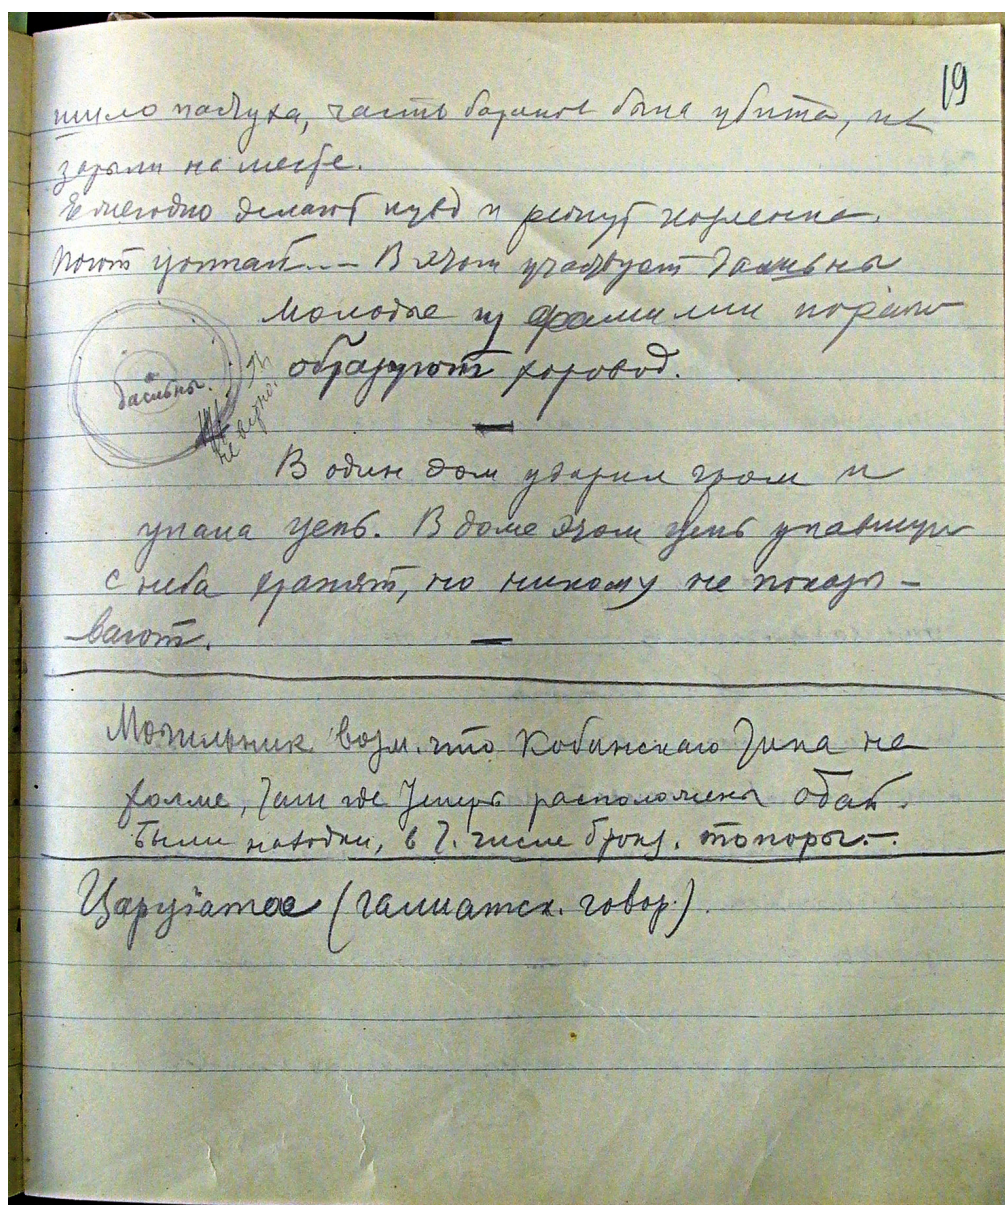 19
шило пастуха, часть баранов была убита, их
зарыли на месте.
Ежегодно делают кувд и режут козленка.
Поют цоппай... В этом участвуют
Молодые из фамилии
образуют хоровод.
басилъны.
не верно.
В один дом ударил гром и
упала цепь. В доме этом цепь упавшую
с неба хранят, но никому не показы-
вают.
Могильник возм. что Кобанскаго типа на
холме, там где теперь расположены обаи.
Были находки, в т. числе бронз. топоры.-
(галиатск. говор.)